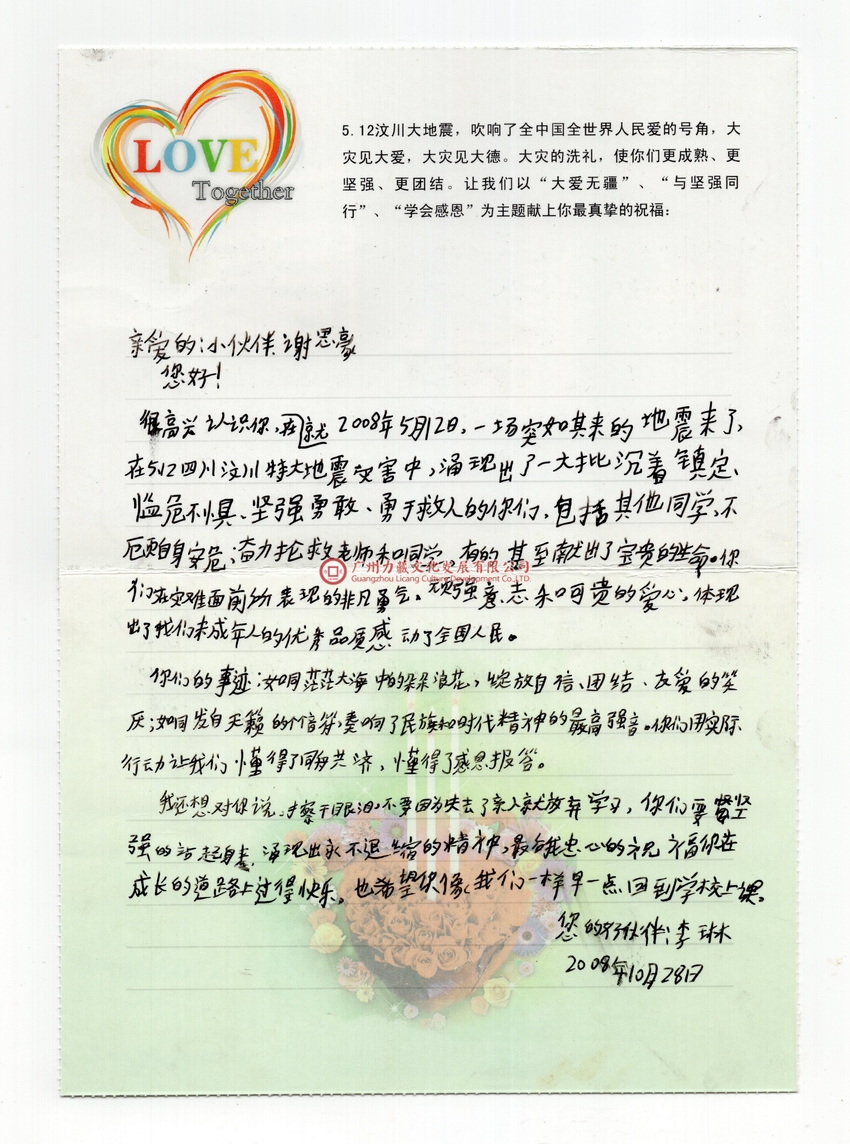 LOVE
Together
5.12汶川大地震，吹响了全中国全世界人民爱的号角，大
灾见大爱，大灾见大德。大灾的洗礼，使你们更成熟、更
坚强、更团结。让我们以“大爱无疆”、“与坚强同
行”、“学会感恩”为主题献上你最真挚的祝福：
亲爱的小伙伴谢思豪
您好！
很高兴认识你，在就2008年5月12日，一场突如其来的地震来了，
在512四川汶川特大地震灾害中，涌现出了一大批沉着镇定、
临危不惧、坚强勇敢、勇于救人的你们，包括其他同学，不
顾自身安危，奋力抢救老师和同学，有的甚至献出了宝贵的生命。你
们在灾难面前所表现的非凡勇气、顽强意志和可贵的爱心，体现
出了我们未成年人的优秀品质感动了全国人民。
广州力藏文化发展有限公司
Guangzhou Licang Culture Development Co.,LTD.
你们的事迹，如同茫茫大海中的朵朵浪花，绽放自信、团结、友爱的笑
厌；如同发自天籁的个音符，奏响了民族和时代精神的最高强音。你们用实际
行动让我们懂得了同舟共济，懂得了感恩报答。
我还想对你说，擦干眼泪，不要因为失去了亲人就放弃学习，你们要坚
强的站起来，涌现出永不退缩的精神，最后我忠心的祝福你在
成长的道路上过得快乐。也希望你像我们一样早一点回到学校上课。
您的好伙伴：李琳
2008年10月28日